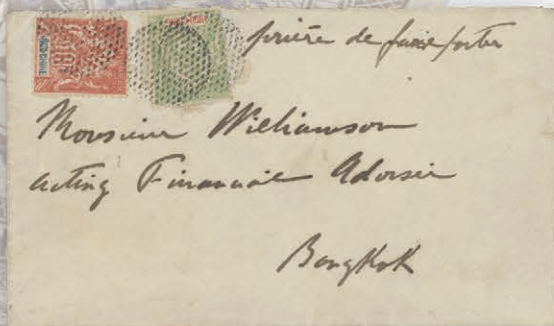 INDO-CHINE
10
prière de faire porter
Monsieur Williamson
acting Financial Adviser
Bangkok